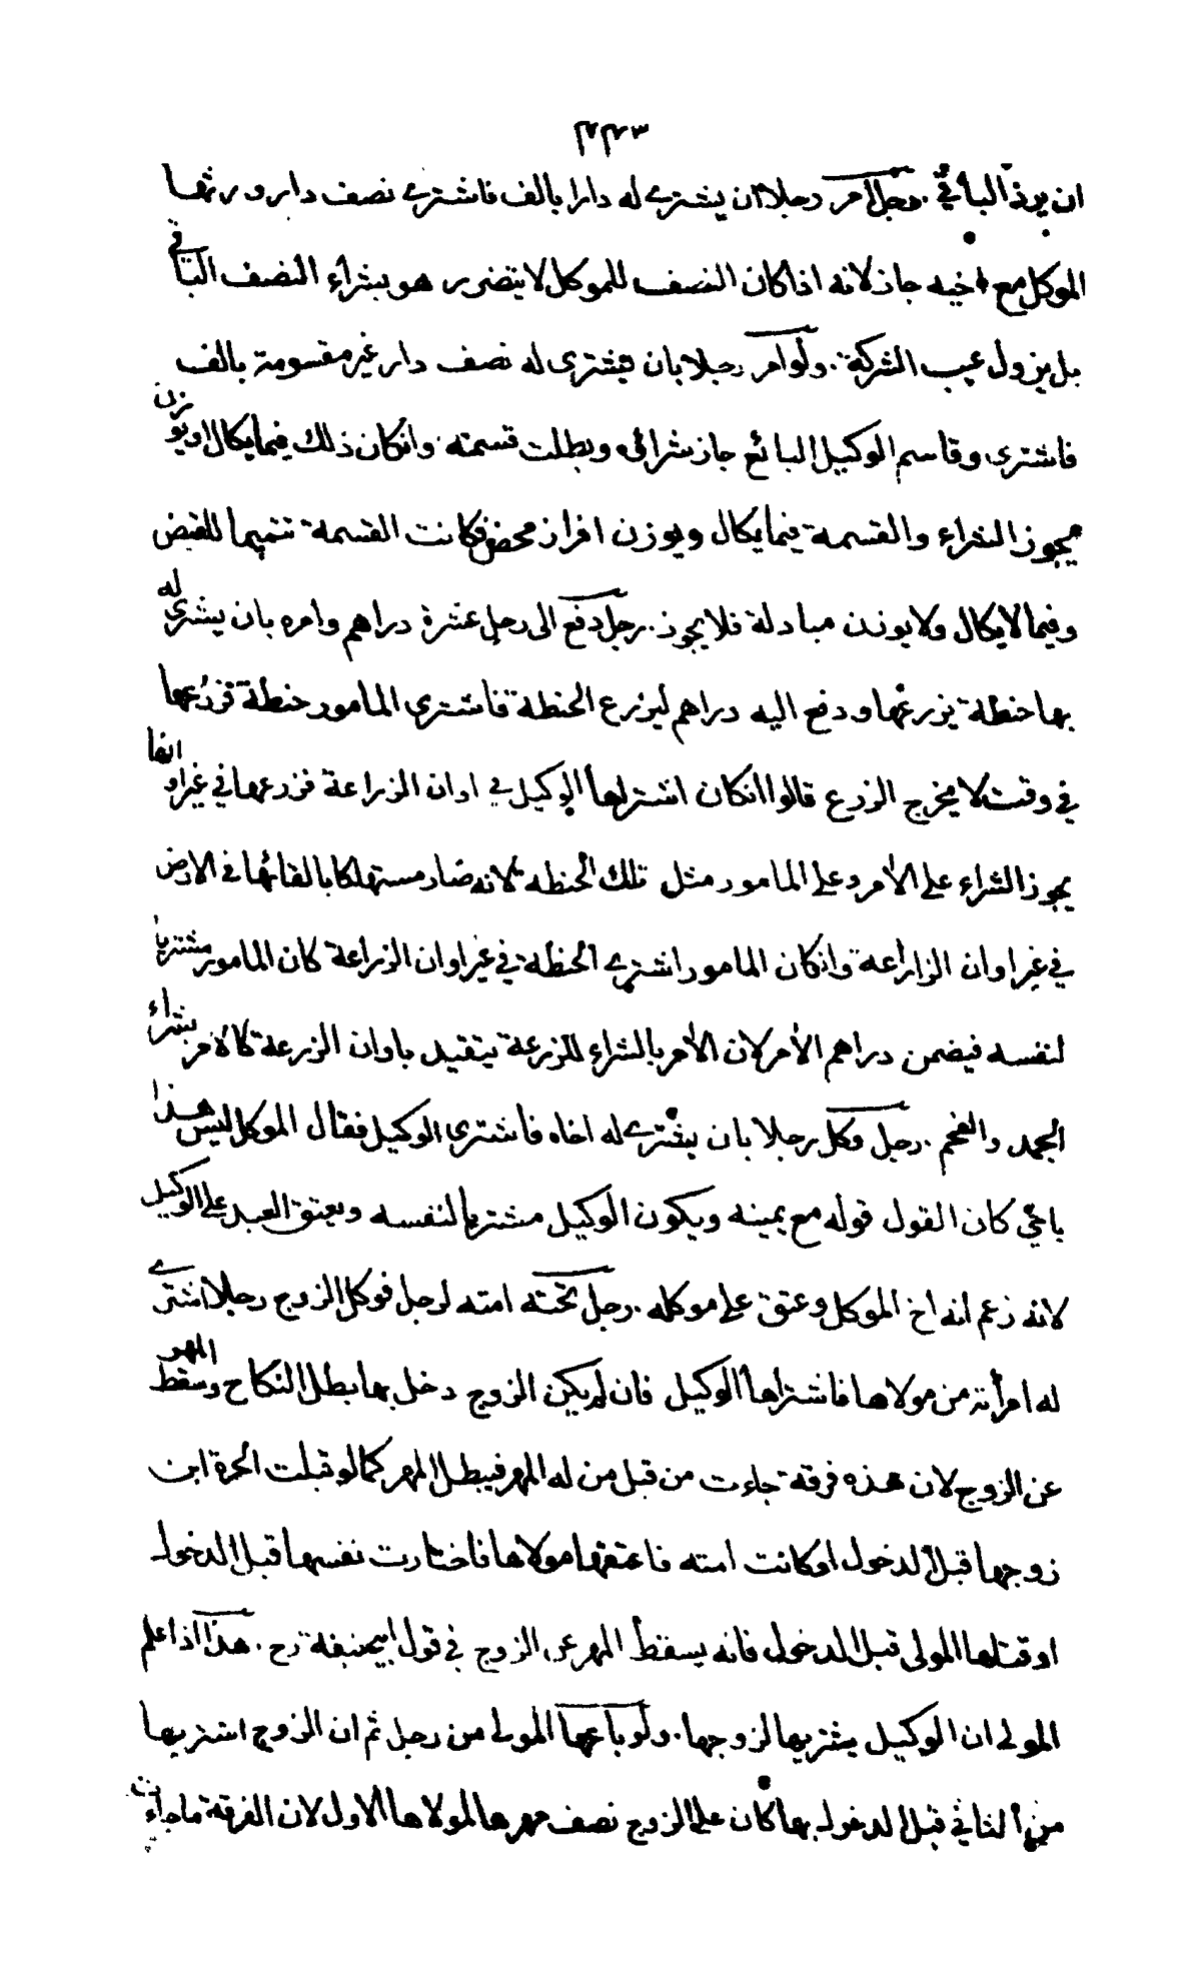 ٢٢٣
ان يرد الباقي. رجل أمر رجلا ان يشتري له دارا بالف فاشتري نصف دار ورثها
الموكل مع اخيه جاز لانه اذا كان النصف للموكل لا يتضرر هو بشراء النصف الباقي
بل يزول عيب الشركة. ولو امر رجلا بان يشترى له نصف دار غير مقسومة بالف
فاشترى وقاسم الوكيل البائع جاز شرائه وبطلت قسمته وانكان ذلك فيما يكال او يوزن
يجوز الشراء والقسمة فيما يكال ويوزن افراز محض فكانت القسمة تتميما للقبض
وفيما لا يكال ولا يوزن مبادلة فلا يجوز. رجل دفع الى رجل عشرة دراهم وامره بان يشترى له
بها حنطة يزرعها ودفع اليه دراهم ليزرع الحنطة فاشترى المامور حنطة فزرعها
في وقت لا يخرج الزرع قالوا انكان اشتراها الوكيل في اوان الزراعة فزرعها في غير اوانها
يجوز الشراء على الآمر وعلى المامور مثل تلك الحنطة لانه صار مستهلكا بالقائها فى الارض
في غير اوان الزاراعة وانكان المامور اشترى الحنطة في غير اوان الزراعة كان المامور مشتريا
لنفسه فيضمن دراهم الآمر لان الآمر بالشراء للزرعة يتقيد باوان الزرعة كالامر بشراء
الجمد والفحم. رجل وكل رجلا بان يشترى له اخاه فاشترى الوكيل فقال الموكل ليس هذا
باخي كان القول قوله مع يمينه ويكون الوكيل مشتريا لنفسه ويعتق العبد على الوكيل
لانه زعم انه اخ الموكل وعتق على موكله. رجل تحته امته لرجل فوكل الزوج رجلا اشترى
له امرأته من مولاها فاشتراها الوكيل فان لم يكن الزوج دخل بها بطل النكاح وسقط المهر
عن الزوج لان هذه فرقة جاءت من قبل من له المهر فيبطل المهر كما لو قبلت الحرة ابن
زوجها قبل الدخول او كانت امته فاعتقها مولاها فاختارت نفسها قبل الدخول
او قتلها المولى قبل الدخول فانه يسقط المهر عن الزوج في قول ابيحنيفة رح. هذا اذا علم
المولى ان الوكيل يشتريها لزوجها. ولو باعها المولى من رجل ثم ان الزوج اشتريها
من الثاني قبل الدخول بها كان على الزوج نصف مهرها لمولاها الاول لان الفرقة ما جاءت